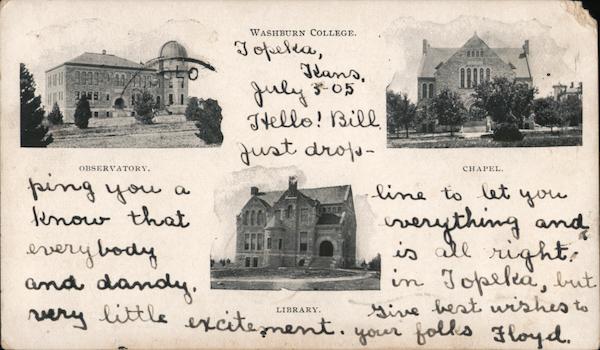 WASHBURN COLLEGE.
Topeka,
Kans,
July 3-05
Hello! Bill
Just drop-
OBSERVATORY.
CHAPEL.
ping you a line to let you
know that everything and
everybody is all right
and dandy. in Topeka, but
LIBRARY.
very little excitement. Give best wishes to
your folks Floyd.